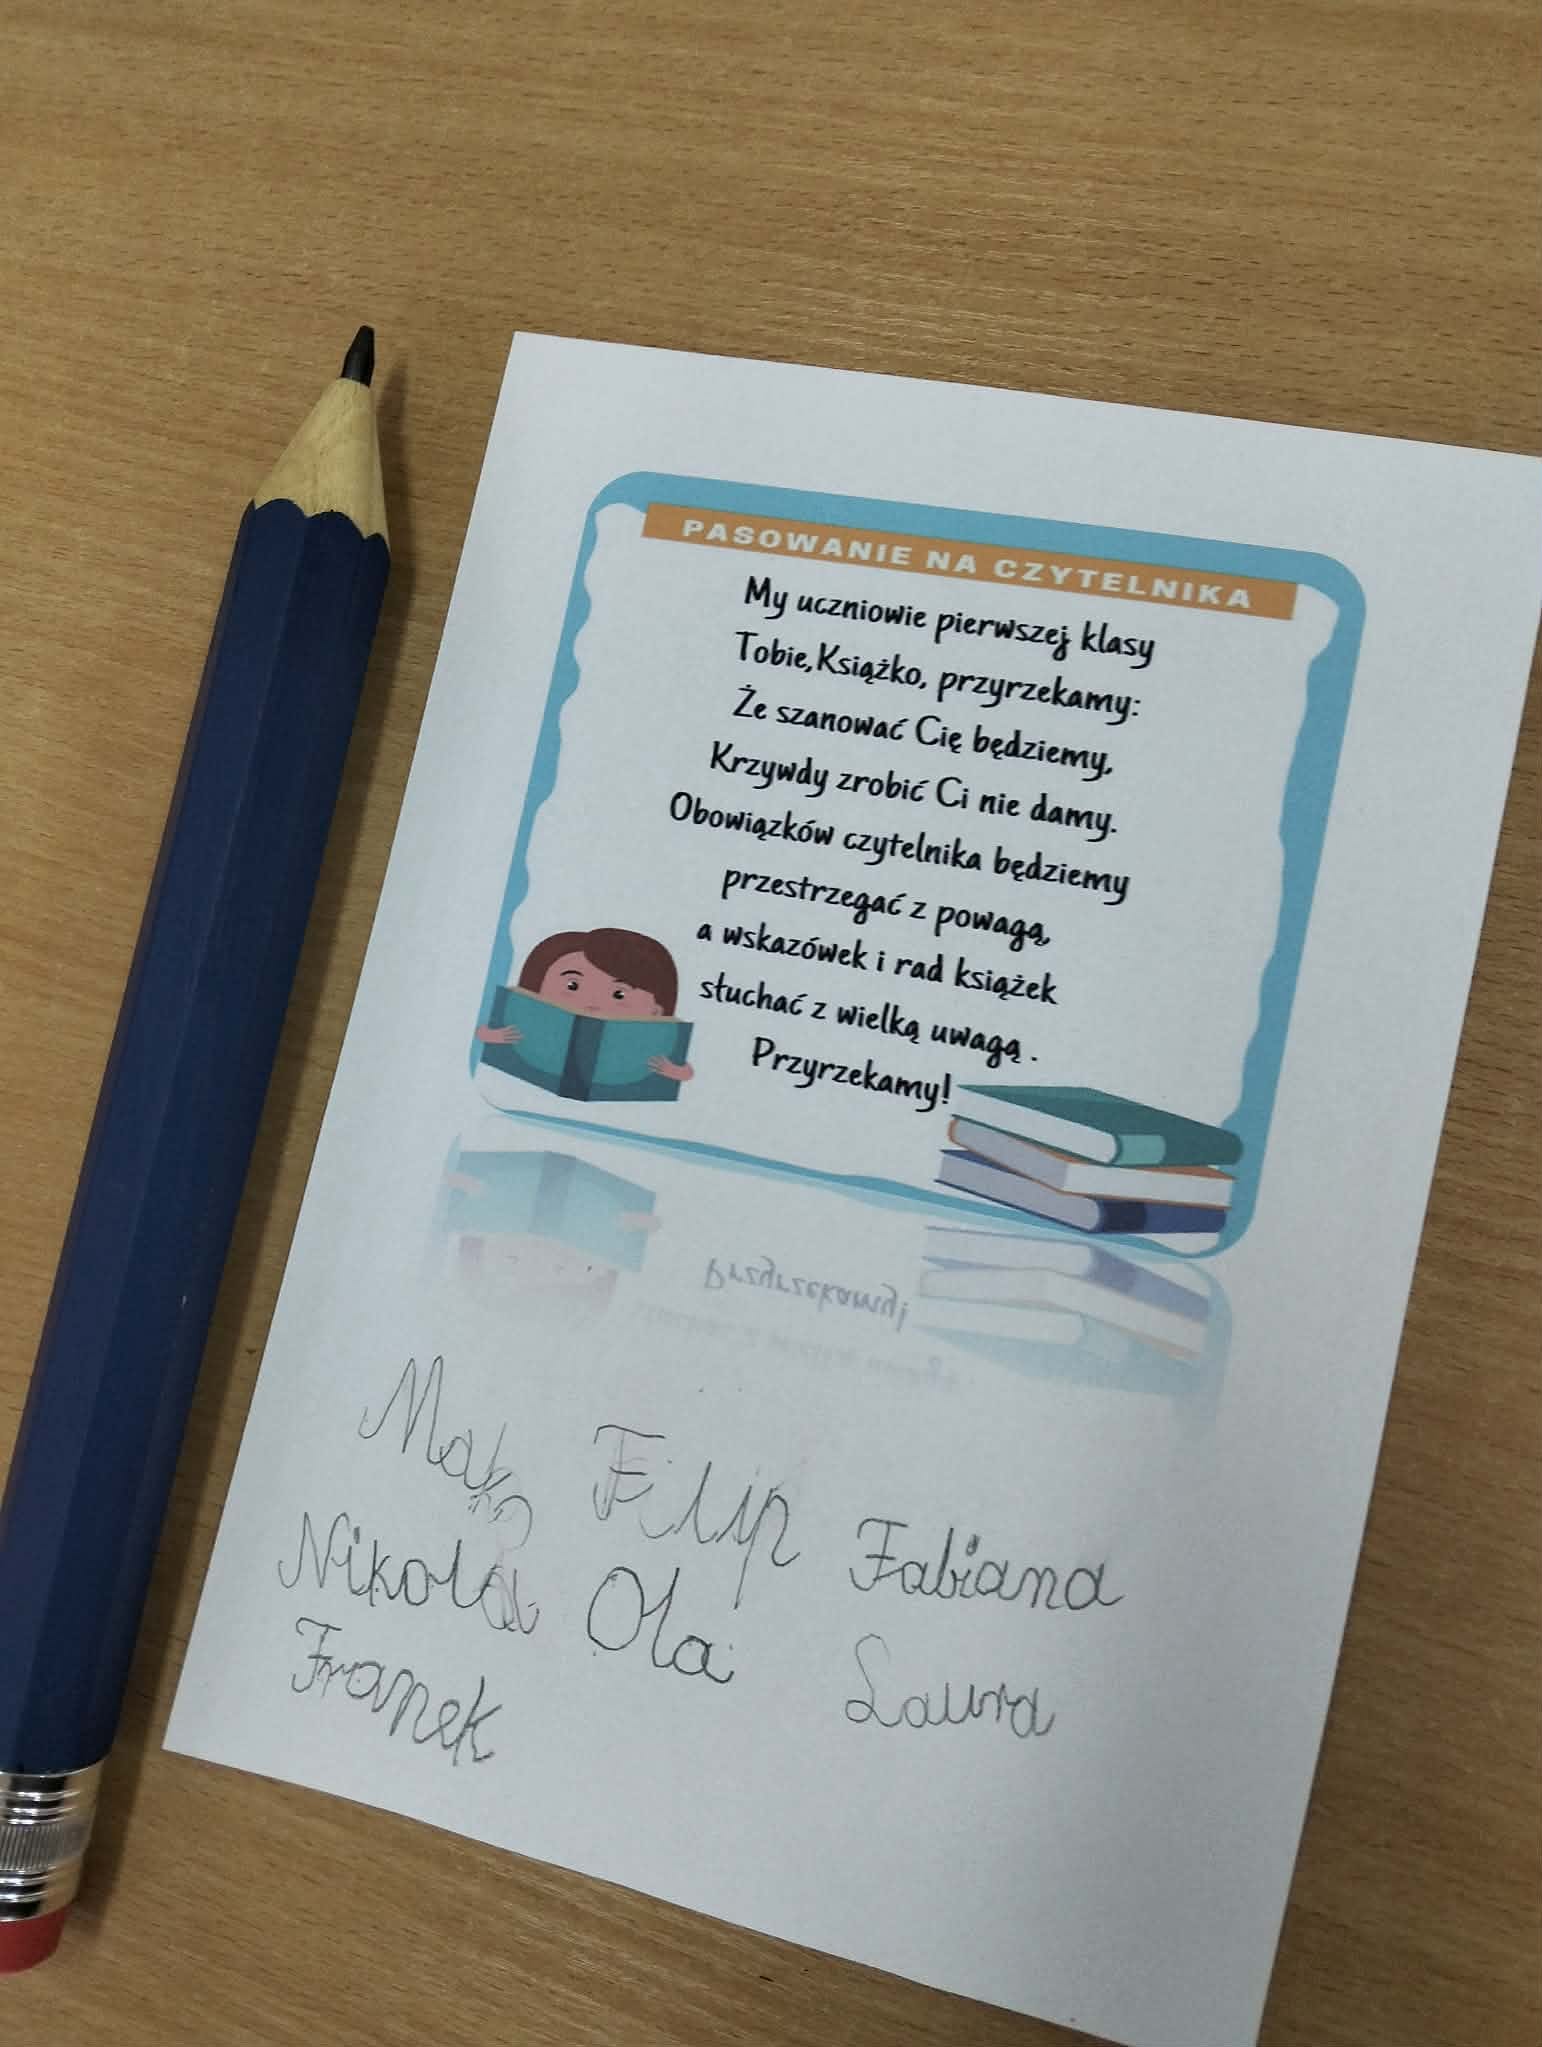 PASOWANIE NA CZYTELNIKA
My uczniowie pierwszej klasy
Tobie,Książko, przyrzekamy:
Że szanować Cię będziemy,
Krzywdy zrobić Ci nie damy.
Obowiązków czytelnika będziemy
przestrzegać z powagą,
a wskazówek i rad książek
słuchać z wielką uwagą .
Przyrzekamy!
Przyrzekamy!
Filip Fabiana
Nikola Ola
Laura
Franek